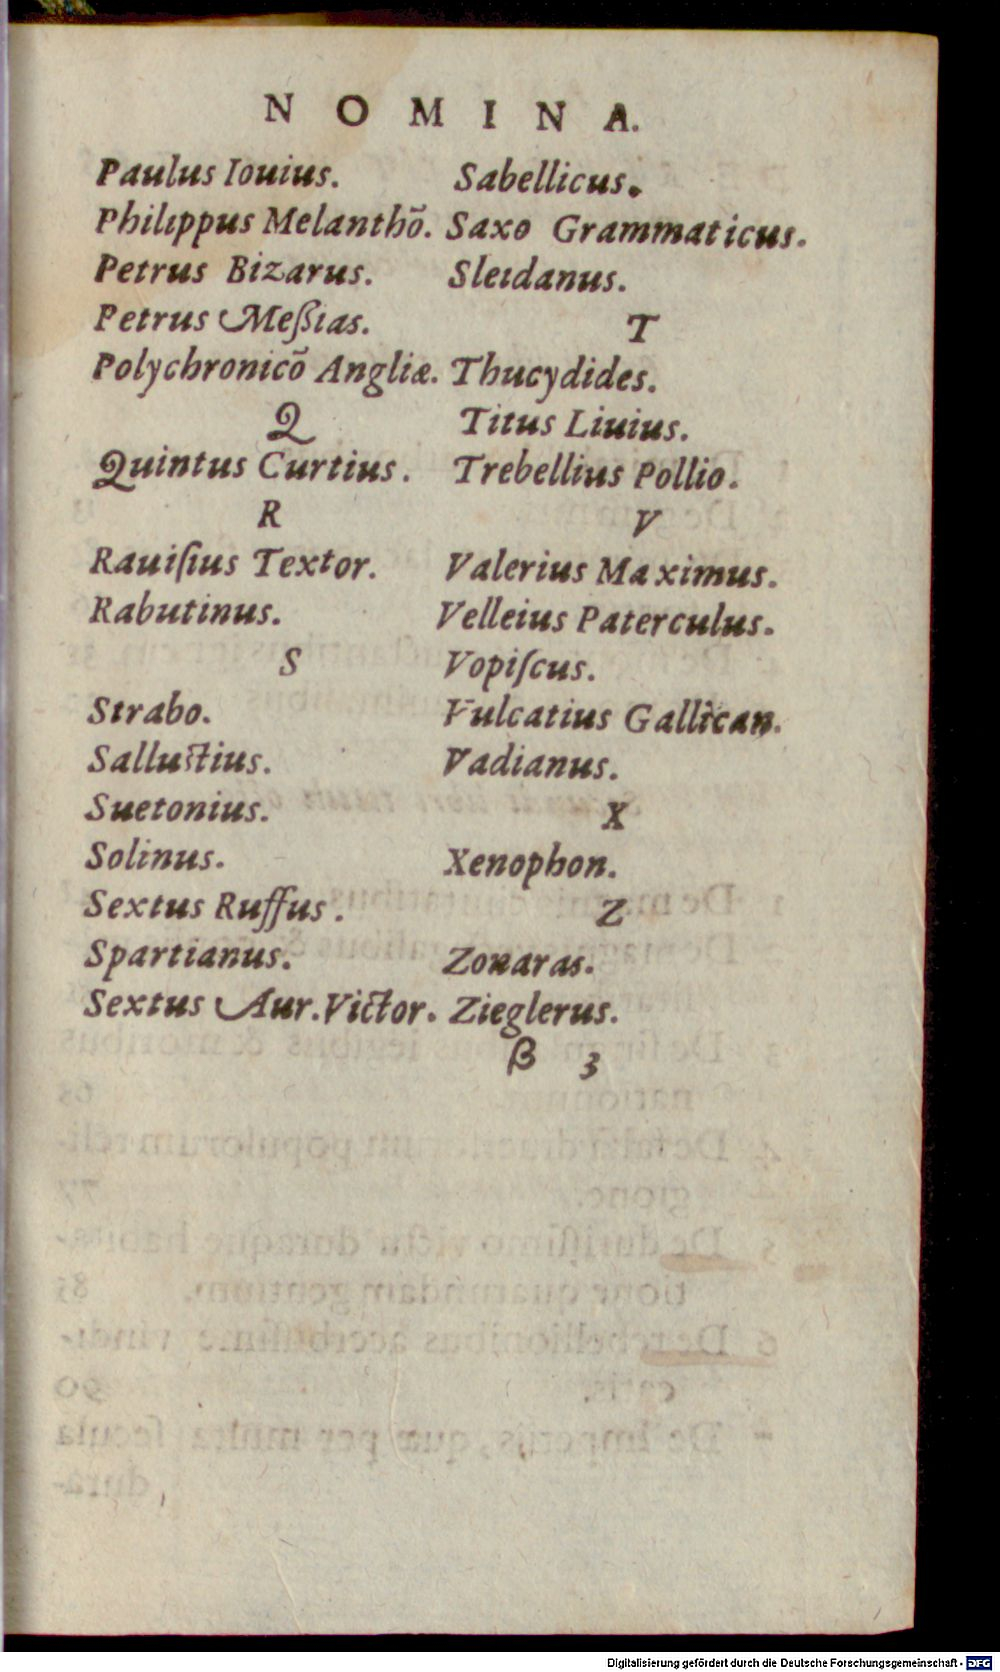 NOMINA.
Paulus Iouius.
Philippus Melanthõ.
Petrus Bizarus.
Petrus Meßias.
Polychronicõ Angliæ.
Q
Quintus Curtius.
R
Rauiſius Textor.
Rabutinus.
S
Strabo.
Salluſtius.
Suetonius.
Solinus.
Sextus Ruffus.
Spartianus.
Sextus Aur. Victor.
Sabellicus.
Saxo Grammaticus.
Sleidanus.
T
Thucydides.
Titus Liuius.
Trebellius Pollio.
V
Valerius Maximus.
Velleius Paterculus.
Vopiſcus.
Vulcatius Gallican.
Vadianus.
X
Xenophon.
Z
Zonaras.
Zieglerus.
β 3
Digitalisierung gefördert durch die Deutsche Forschungsgemeinschaft - DFG